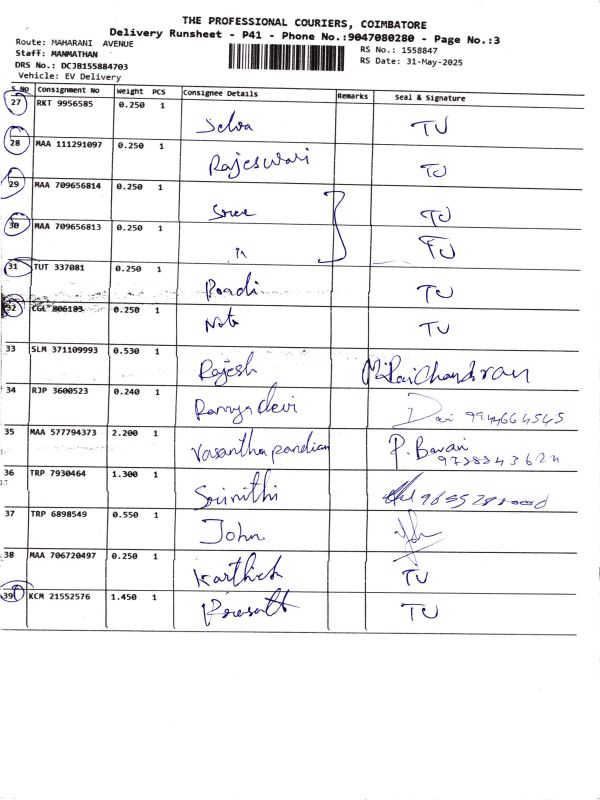 THE PROFESSIONAL COURIERS, COIMBATORE
Delivery Runsheet - P41 - Phone No.:9047080280 - Page No.:3
Route: MAHARANI AVENUE
Staff: MANMATHAN
DRS No.: DCJB155884703
Vehicle: EV Delivery
RS No.: 1558847
RS Date: 31-May-2025
S No Consignment No Weight PCS Consignee Details Remarks Seal & Signature
27 RKT 9956585 0.250 1
Selva TU
28 MAA 111291097 0.250 1
Rajeswari TU
29 MAA 709656814 0.250 1
Sree TU
30 MAA 709656813 0.250 1
TU
31 TUT 337081 0.250 1
TU
32 CGL 806183 0.250 1
Note TU
33 SLM 371109993 0.530 1
Rajesh
34 RJP 3600523 0.240 1
Ramyadevi
35 MAA 577794373 2.200 1
Vasanthapandian
36 TRP 7930464 1.300 1
Srinithi
37 TRP 6898549 0.550 1
John
38 MAA 706720497 0.250 1
Karthick TU
39 KCM 21552576 1.450 1
TU